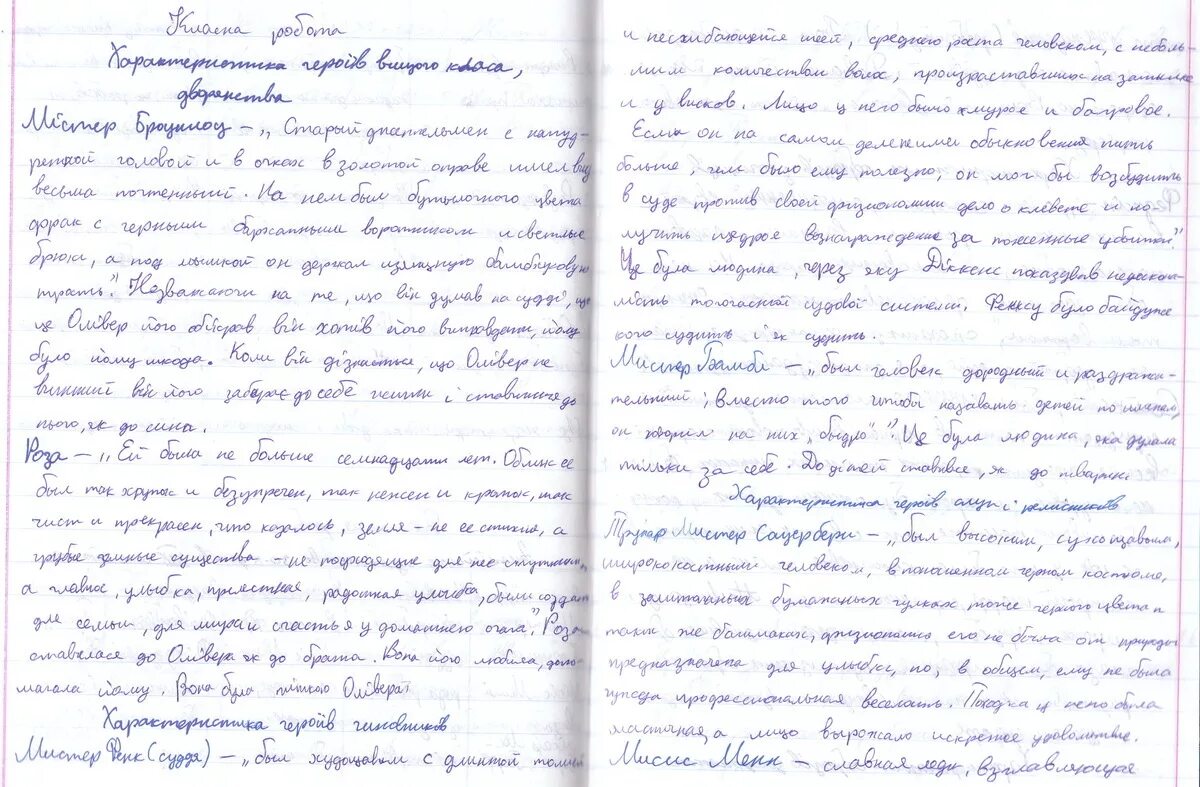 Класна робота
Характеристика героїв вищого класа,
дворянства
Містер Броунлоу – „Старый джентельмен с напуд-
ренной головой и в очках в золотой оправе имел вид
весьма почтенный. На нем был бутылочного цвета
фрак с черными бархатным воротником и светлые
брюки, а под мышкой он держал изящную бамбуковую
трость." Незважаючи на те, що він думав на судді, що
це Олівер його обікрав він хотів його виправдати, йому
було йому шкода. Коли він дізнається, що Олівер не
винний він його забирає до себе жити і ставиться до
нього, як до сина.
Роза – „Ей была не больше семнадцати лет. Облик ее
был так хрупок и безупречен, так нежен и кроток, так
чист и прекрасен, что казалось, земля – не ее стихия, а
грубые земные существа – не подходящие для нее спутники,
а главное, улыбка, прелестная, радостная улыбка, были созданы
для семьи, для мира и счастья у домашнего очага." Роза
ставилася до Олівера як до брата. Вона його любила, допо-
магала йому. Вона була тіткою Олівера
Характеристика героїв чиновників
Мистер Фенк (суддя) – „был худощавым с длинной талией
и несгибающейся шеей, среднего роста человеком, с неболь-
шим количеством волос, произраставших на затылке
и у висков. Лицо у него было хмурое и багровое.
Если он на самом деле не имел обыкновения пить
больше, чем было ему полезно, он мог бы возбудить
в суде против своей физиономии дело о клевете и по-
лучить щедрое вознаграждение за понесенные убытки"
Це була людина, через яку Діккенс показував недоскона-
лість тогочасной судової системи. Фенксу було байдуже
кого судить і як судить.
Мистер Бамбл – „был человек дородный и раздражи-
тельный; Вместо того чтобы называть детей по имени,
он говорил на них „быдло"". Це була людина, яка думала
тільки за себе. До дітей ставився, як до тварин
Характеристика героїв слуг і ремісників
Трунар Мистер Сауербери – „был высоким, сухощавым,
ширококостным человеком, в поношенном черном костюме,
в заштопанных бумажных чулках тоже черного цвета и
таких же башмаках, физиономия его не была от природы
предназначена для улыбки, но, в общем, ему не была
чужда профессиональная веселость. Походка у него была
эластичная, а лицо выражало искреннее удовольствие.
Мисис Менн – славная леди, возглавляющая